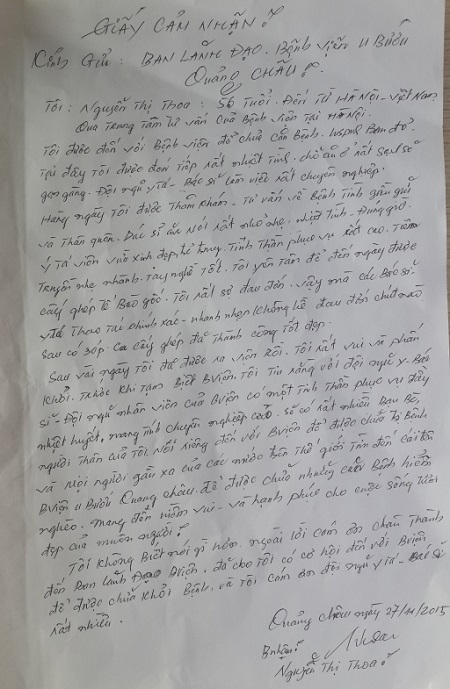 GIẤY CẢM NHẬN!
Kính Gửi: BAN LÃNH ĐẠO. Bệnh viện U Bướu
QUẢNG CHÂU!
Tôi: Nguyễn Thị Thoa: 56 Tuổi. Đến Từ Hà Nội - Việt Nam
Qua Trung Tâm Tư vấn của Bệnh viện Tại Hà Nội.
Tôi được đến với Bệnh viện để chữa căn Bệnh. Luspus Ban đỏ.
Tại đây Tôi được đón tiếp Rất nhiệt Tình. chỗ ăn ở Rất sạch sẽ
gọn gàng. Đội ngũ y Tá - Bác sĩ làm việc Rất chuyên nghiệp.
Hàng ngày Tôi được Thăm Khám. Tư vấn về Bệnh Tình gần gũi
và Thân quen. Bác sĩ ăn Nói Rất nhỏ nhẹ, nhiệt Tình - Đúng giờ.
y Tá viên vừa xinh đẹp, Tinh Thần phục vụ Rất cao. Tiêm
Truyền nhẹ nhành. Tay nghề Tốt. Tôi yên tâm để đến ngày được
cấy ghép Tế Bào gốc. Tôi Rất sợ đau đớn. vậy mà các Bác sĩ.
y Tá Thao Tác chính xác - nhanh nhẹn không hề đau đớn chút nào
Ca cấy ghép đã Thành công Tốt đẹp.
Sau vài ngày Tôi đã được ra viện Rồi. Tôi Rất vui và phấn
khởi. Trước khi Tạm Biệt Bviện, Tôi Tin Rằng với đội ngũ y - Bác
sĩ - Đội ngũ nhân viên của Bviện có một Tinh Thần phục vụ đầy
nhiệt huyết, mang tính chuyên nghiệp cao. Sẽ có Rất nhiều Bạn Bè,
người Thân của Tôi. Nói riêng đến với Bviện để được chữa Trị Bệnh
và Mọi người gần xa của các nước trên Thế giới Tìm đến
Bviện U Bướu Quảng châu. để được chữa những căn Bệnh hiểm
nghèo. mang đến niềm vui - và hạnh phúc cho cuộc sống Tươi
đẹp của muôn người!
Tôi không Biết nói gì hơn. ngoài lời cảm ơn chân Thành
đến Ban Lãnh Đạo Bviện, đã cho Tôi có cơ hội đến với Bviện
để được chữa khỏi Bệnh, và Tôi cảm ơn đội ngũ y Tá - Bác sĩ
Rất nhiều.
Quảng châu ngày 27/11/2015
Bnhân!
Nguyễn Thị Thoa!